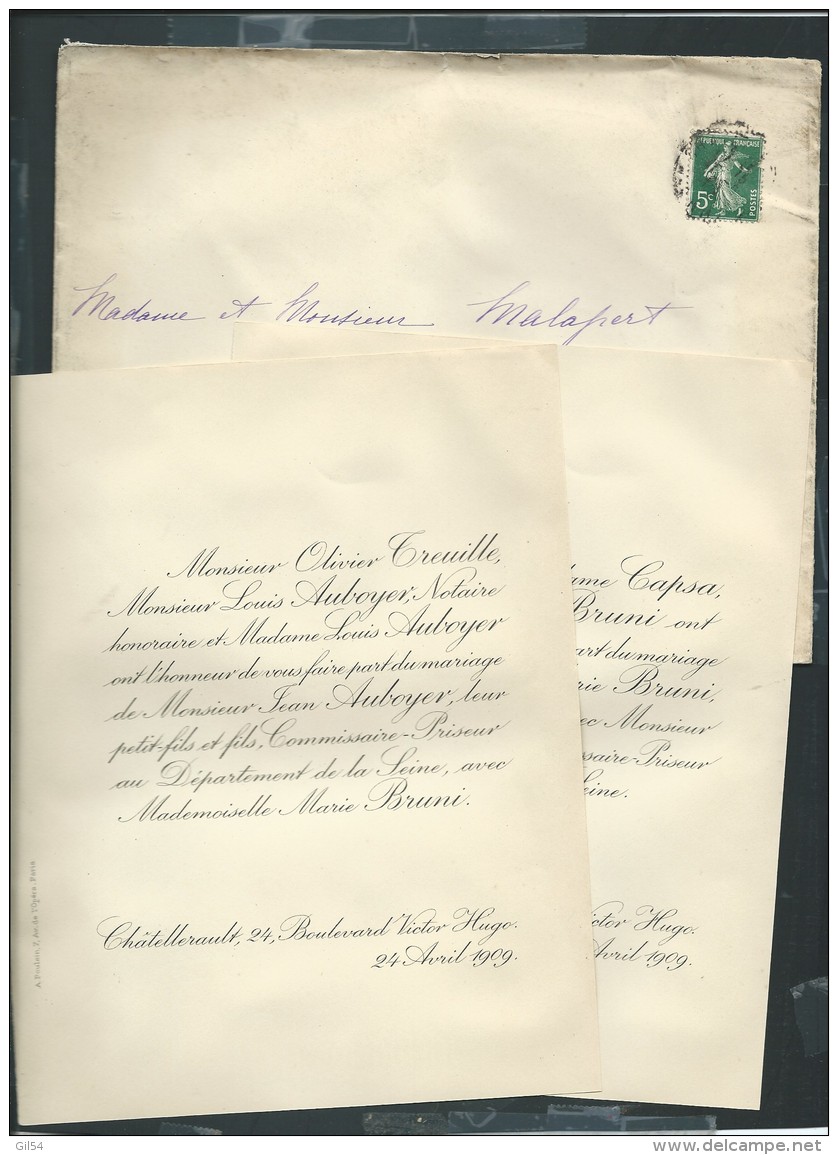 REPUBLIQUE FRANÇAISE
5c
POSTES
Madame et Monsieur Malapert
Monsieur Olivier Treuille,
Monsieur Louis Auboyer, Notaire
honoraire et Madame Louis Auboyer
ont l'honneur de vous faire part du mariage
de Monsieur Jean Auboyer, leur
petit-fils et fils, Commissaire-Priseur
au Département de la Seine, avec
Mademoiselle Marie Bruni.
Châtellerault, 24, Boulevard Victor Hugo.
24 Avril 1909.
A. Poulain, 7, Av. de l'Opéra. Paris
ame Capsa,
Bruni ont
art du mariage
rie Bruni,
ec Monsieur
ssaire-Priseur
eine.
ictor Hugo.
Avril 1909.
Gil54
www.delcampe.net